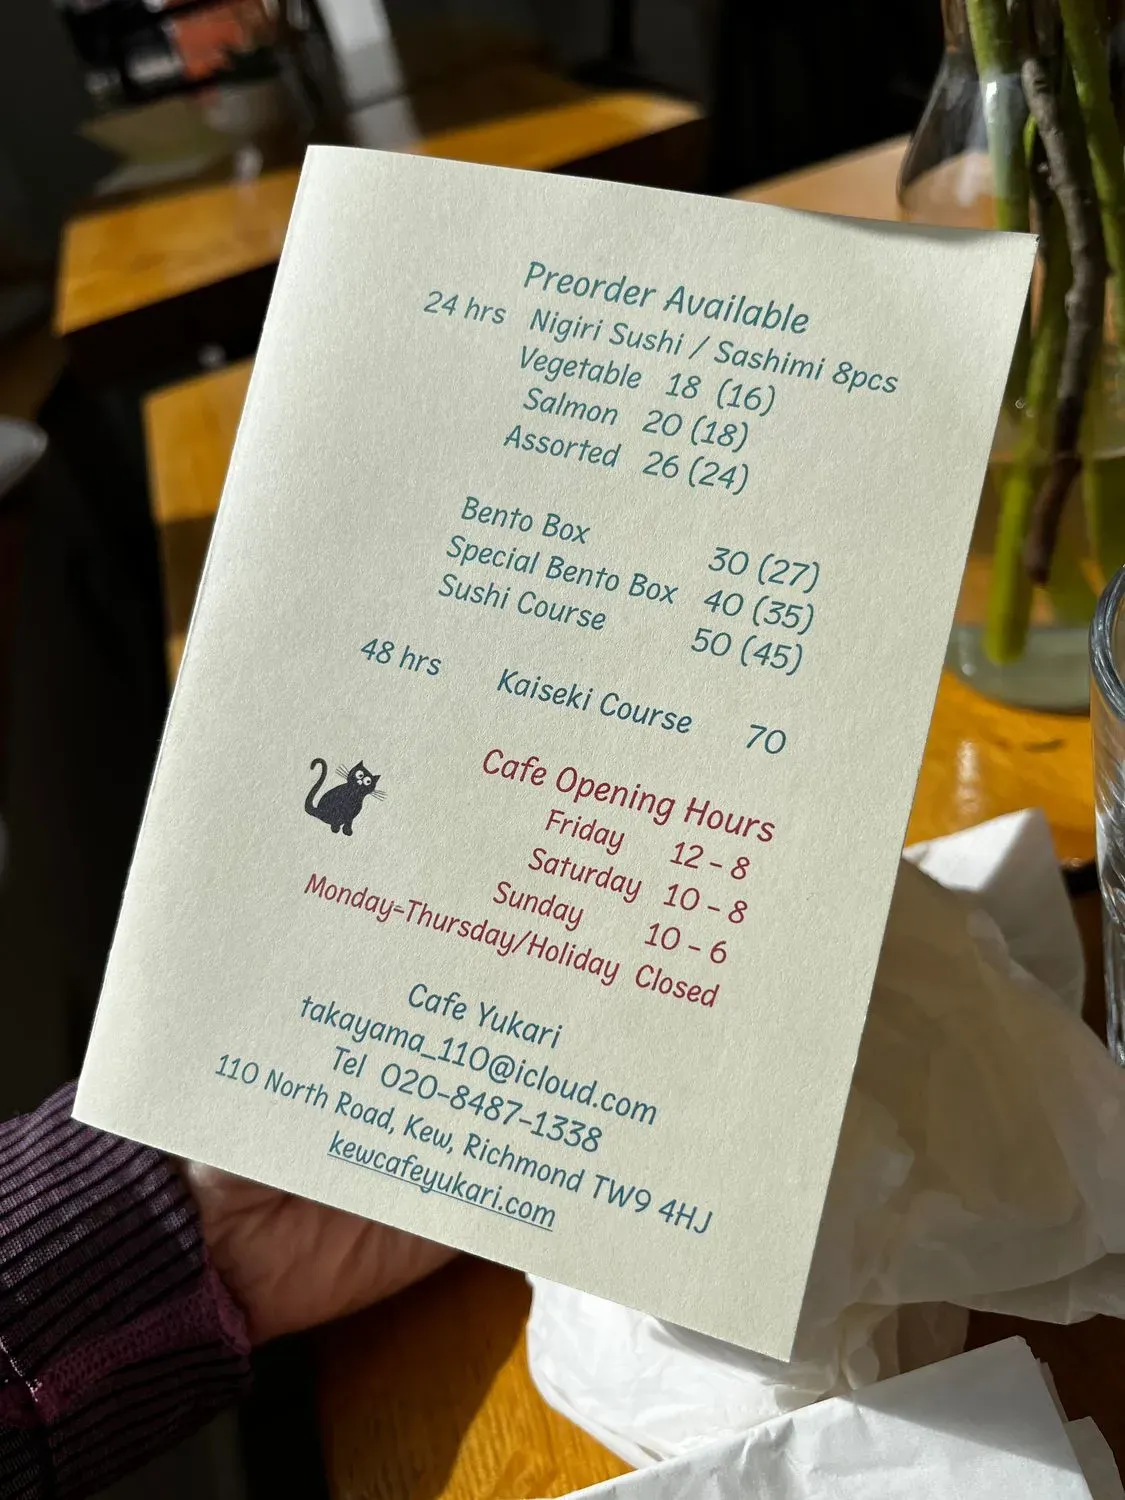 Preorder Available
24 hrs Nigiri Sushi / Sashimi 8pcs
Vegetable 18 (16)
Salmon 20 (18)
Assorted 26 (24)
Bento Box 30 (27)
Special Bento Box 40 (35)
Sushi Course 50 (45)
48 hrs Kaiseki Course 70
Cafe Opening Hours
Friday 12 - 8
Saturday 10 - 8
Sunday 10 - 6
Monday-Thursday/Holiday Closed
Cafe Yukari
takayama_110@icloud.com
Tel 020-8487-1338
110 North Road, Kew, Richmond TW9 4HJ
kewcafeyukari.com